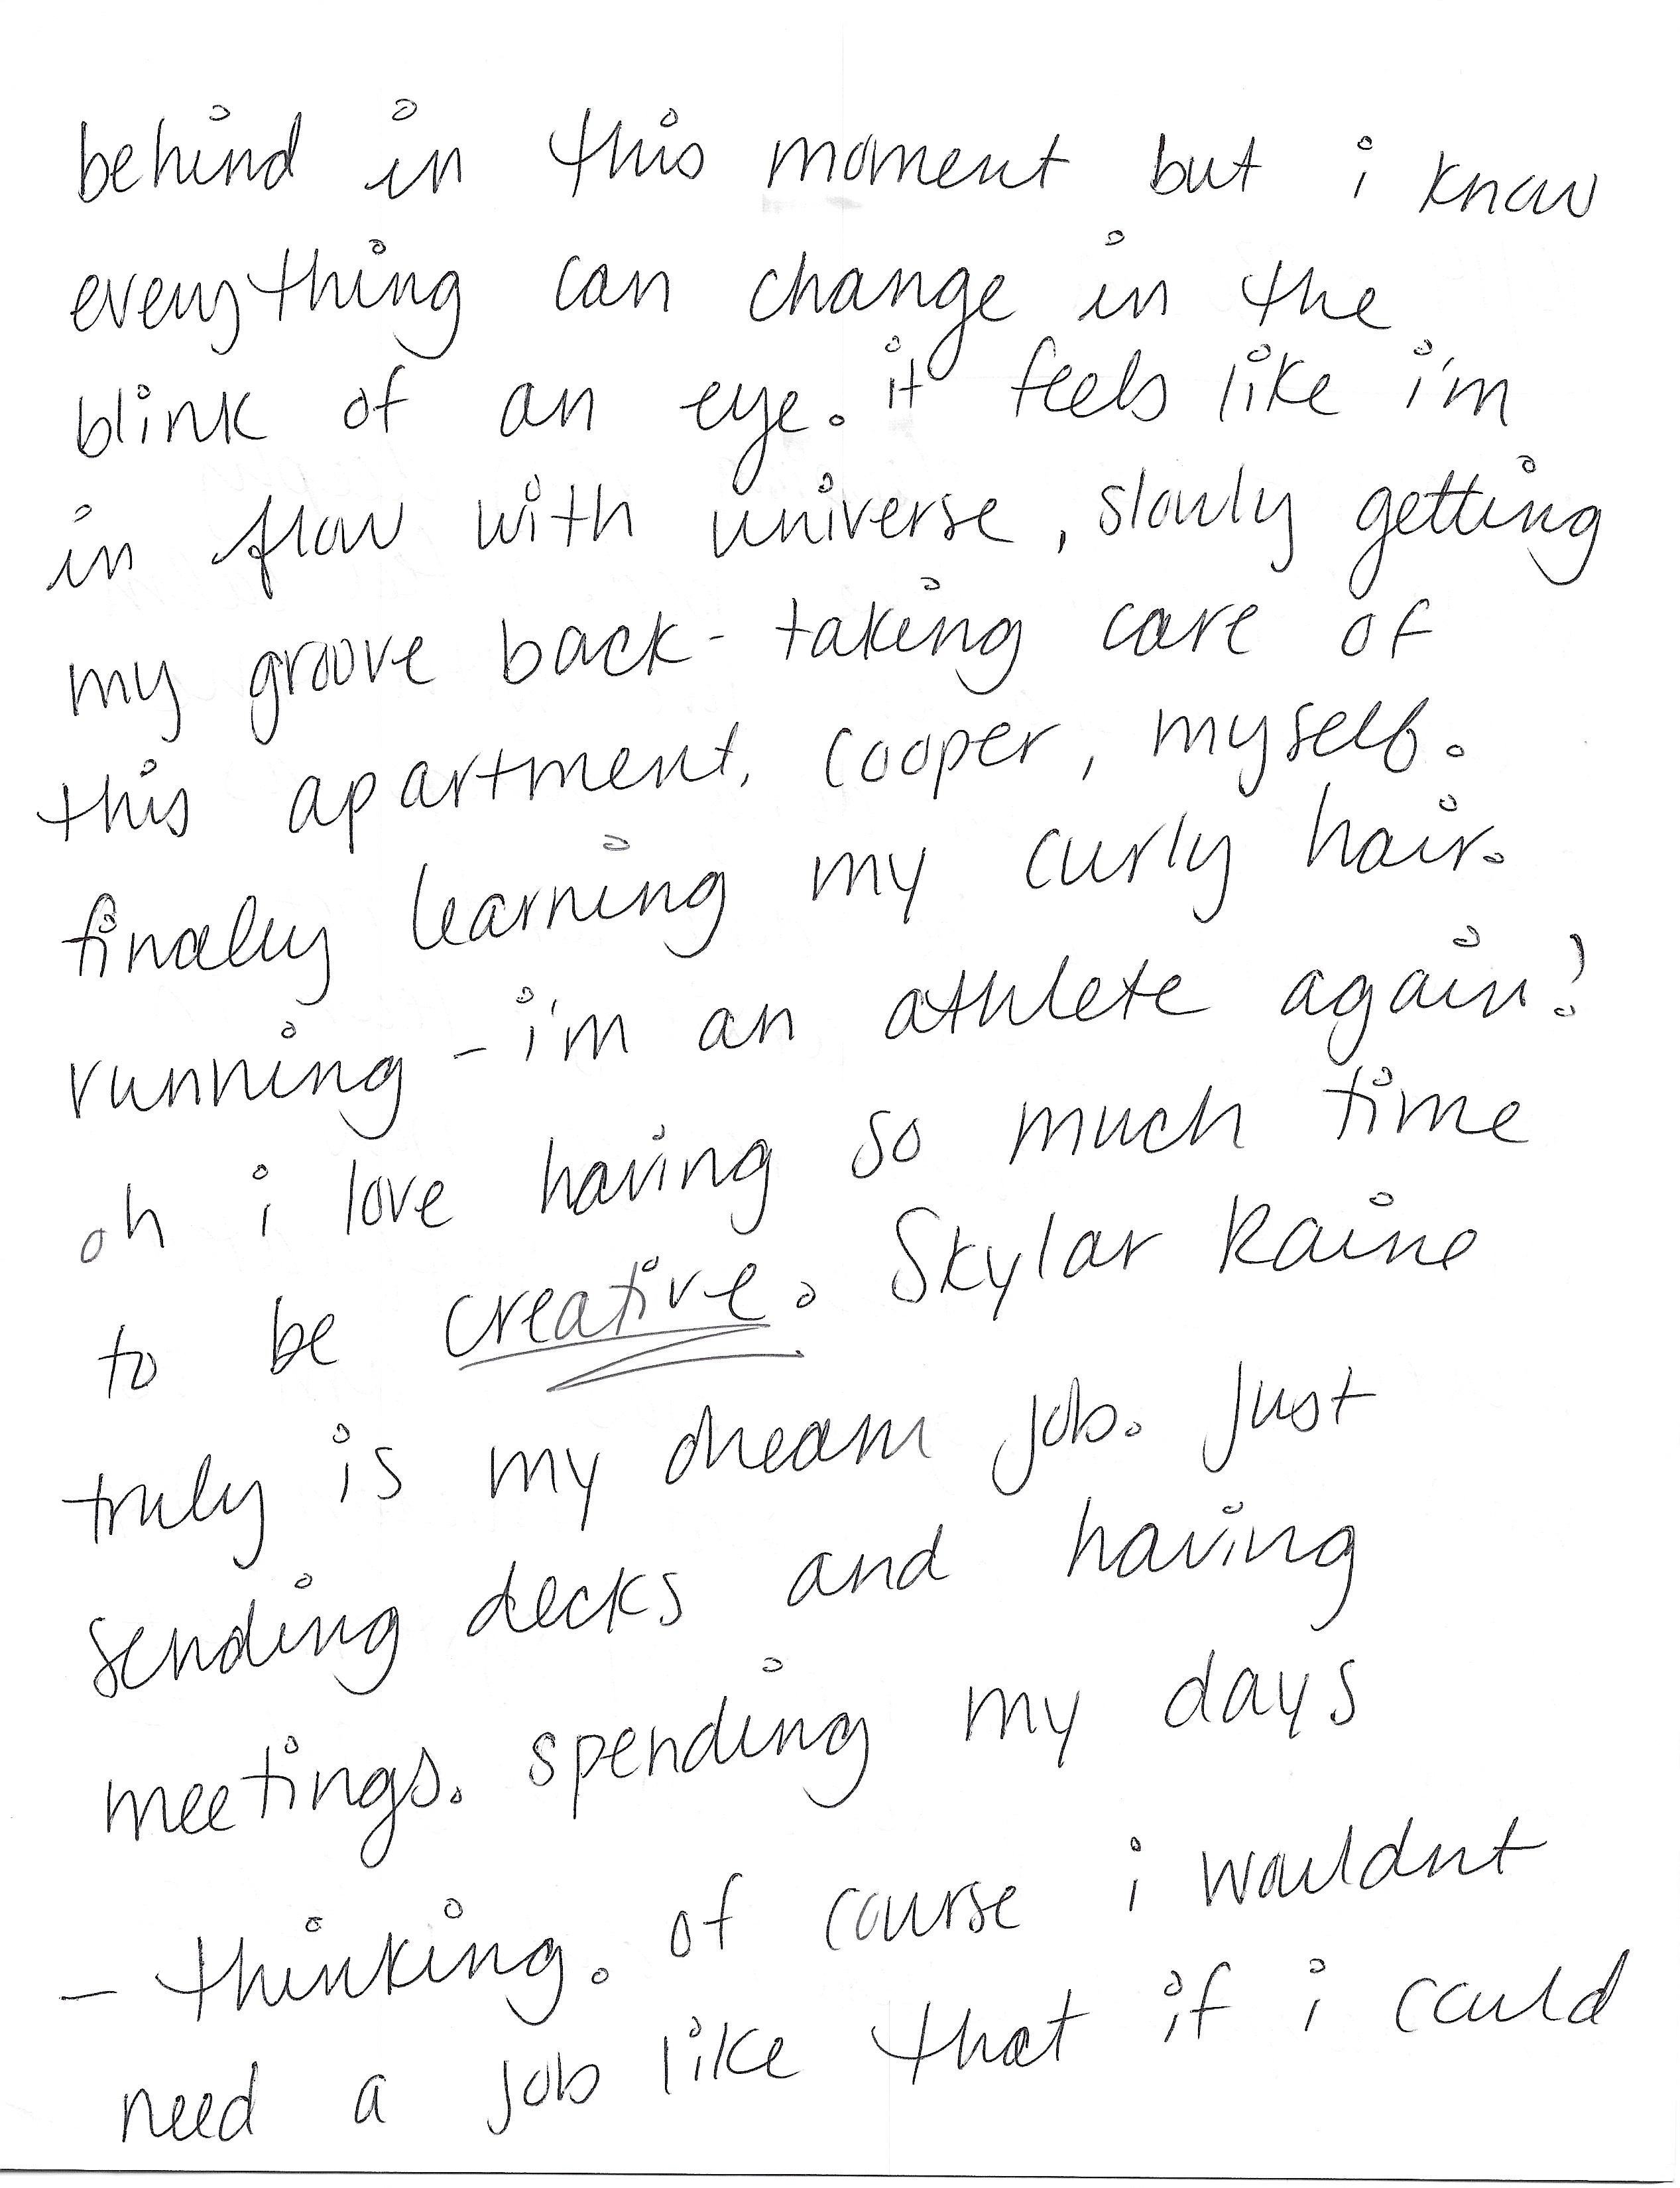 behind in this moment but i know
everything can change in the
blink of an eye. it feels like i'm
in flow with universe, slowly getting
my groove back - taking care of
this apartment, cooper, myself.
finally learning my curly hair.
running - i'm an athlete again!
oh i love having so much time
to be creative. Skylar Raine
truly is my dream job. Just
sending decks and having
meetings. spending my days
- thinking. of course i wouldnt
need a job like that if i could